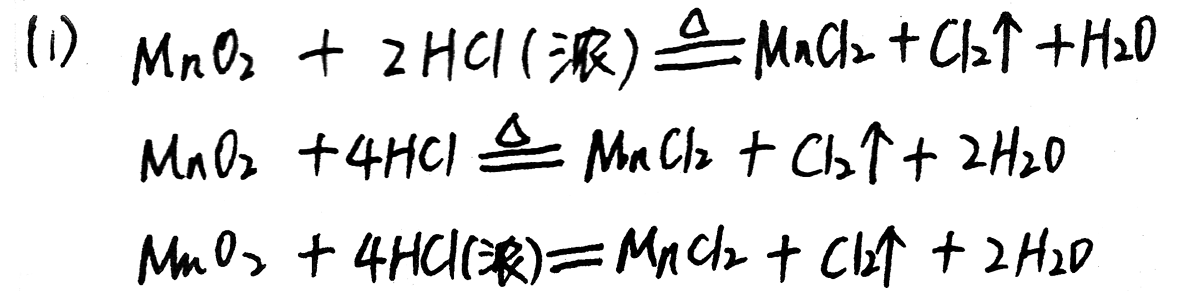 (1) MnO₂ + 2HCl(浓) ≜ MnCl₂ + Cl₂↑ + H₂O
MnO₂ + 4HCl ≜ MnCl₂ + Cl₂↑ + 2H₂O
MnO₂ + 4HCl(浓) = MnCl₂ + Cl₂↑ + 2H₂O